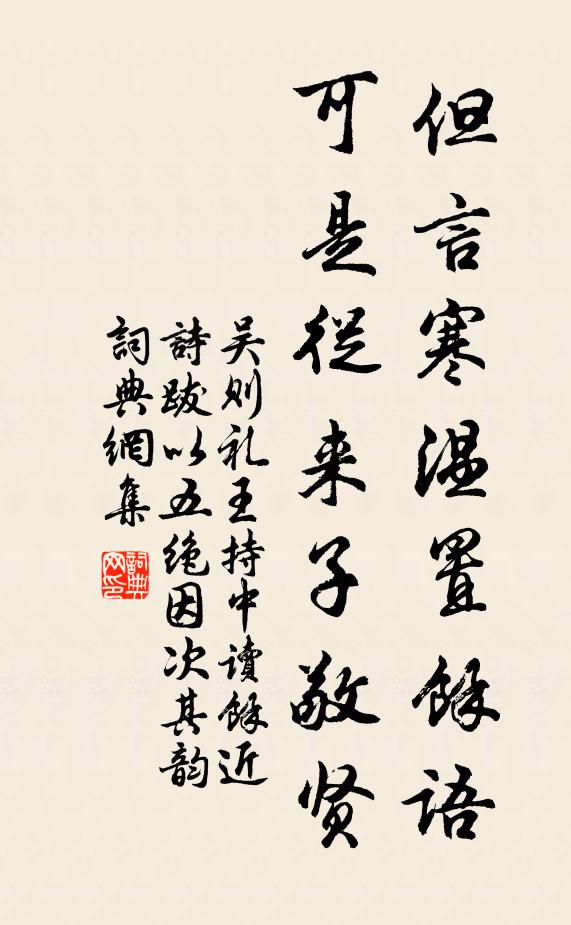 但言寒温置餘語
可是從来子敬贤
吴则礼王持中讀餘近
詩跋以五绝因次其韵
詞典網集
詞典网印